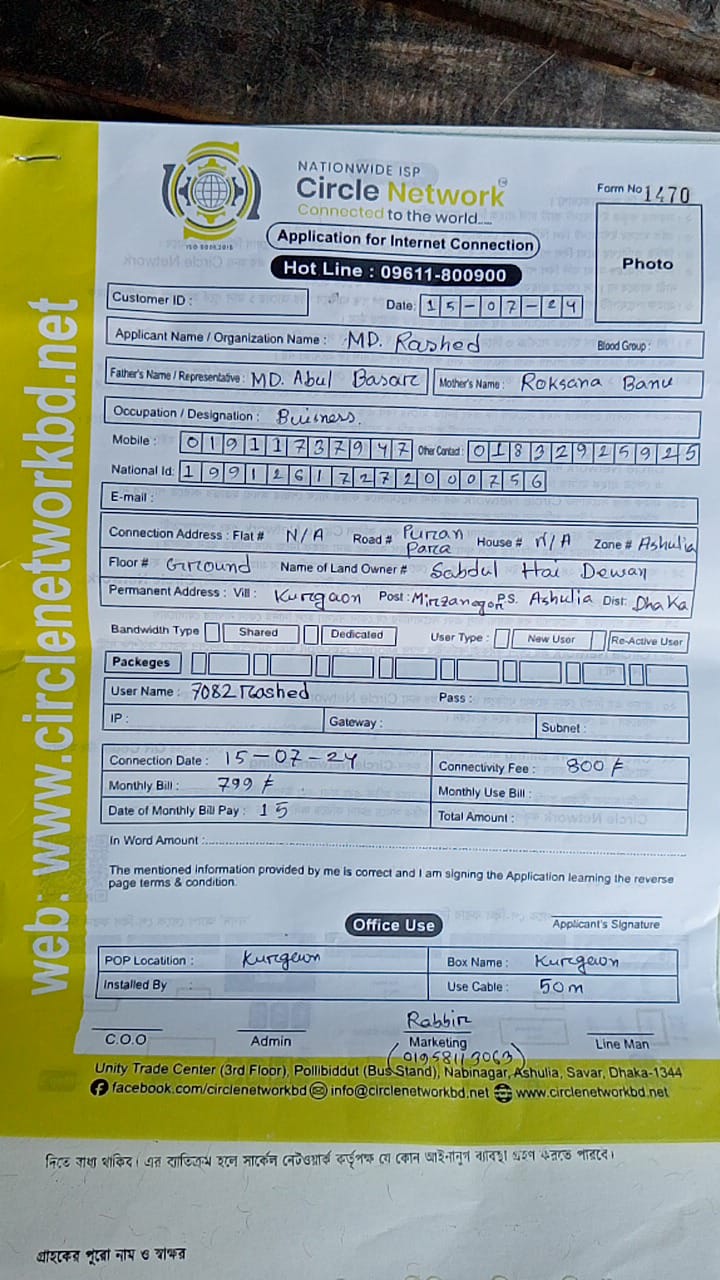 NATIONWIDE ISP
Circle Network
Connected to the world....
ISO 9001:2015
Form No 1470
Application for Internet Connection
Hot Line : 09611-800900
Photo
Customer ID :
Date: 15-07-24
Applicant Name / Organization Name : MD. Rashed Blood Group :
Father's Name / Representative : MD. Abul Basar Mother's Name : Roksana Banu
Occupation / Designation : Buisness.
Mobile : 01911737947 Other Contact : 01832925925
National Id: 19912617272000756
E-mail :
Connection Address : Flat # N/A Road # Puran Para House # N/A Zone # Ashulia
Floor # Ground Name of Land Owner # Sabdul Hai Dewan
Permanent Address : Vill : Kurgaon Post : Mirzanagor P.S. Ashulia Dist: Dhaka
Bandwidth Type Shared Dedicated User Type : New User Re-Active User
Packeges
User Name : 7082Rashed Pass :
IP : Gateway : Subnet :
Connection Date : 15-07-24 Connectivity Fee : 800/-
Monthly Bill : 799/- Monthly Use Bill :
Date of Monthly Bill Pay : 15 Total Amount :
In Word Amount :
The mentioned information provided by me is correct and I am signing the Application learning the reverse
page terms & condition.
Office Use
Applicant's Signature
POP Locatition : Kurgaon Box Name : Kurgaon
Installed By : Use Cable : 50m
Rabbir
C.O.O Admin Marketing Line Man
(01958113063)
Unity Trade Center (3rd Floor), Pollibiddut (Bus Stand), Nabinagar, Ashulia, Savar, Dhaka-1344
facebook.com/circlenetworkbd info@circlenetworkbd.net www.circlenetworkbd.net
web: www.circlenetworkbd.net
দিতে বাধ্য থাকিব। এর ব্যতিক্রম হলে সার্কেল নেটওয়ার্ক কর্তৃপক্ষ যে কোন আইনানুগ ব্যবস্থা গ্রহণ করতে পারবে।
গ্রাহকের পুরো নাম ও স্বাক্ষর